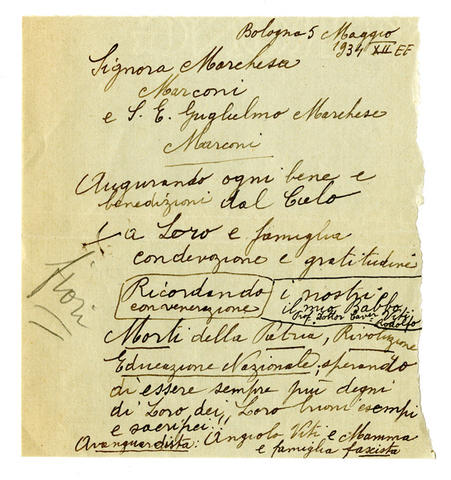 Bologna 5 Maggio
1934 XII EF
Signora Marchesa
Marconi
e S. E. Guglielmo Marchese
Marconi
Augurando ogni bene e
benedizioni dal Cielo
a Loro e famiglia
con devozione e gratitudine
fiori
Ricordando i nostri
con venerazione il mio Babbo
Prof. Dottor Cav. Viti
Rodolfo
Morti della Patria, Rivoluzione
Educazione Nazionale; sperando
di essere sempre più degni
di Loro dei Loro buoni esempi
e sacrifici!!
Avanguardista: Angiolo Viti e Mamma
e famiglia fascista